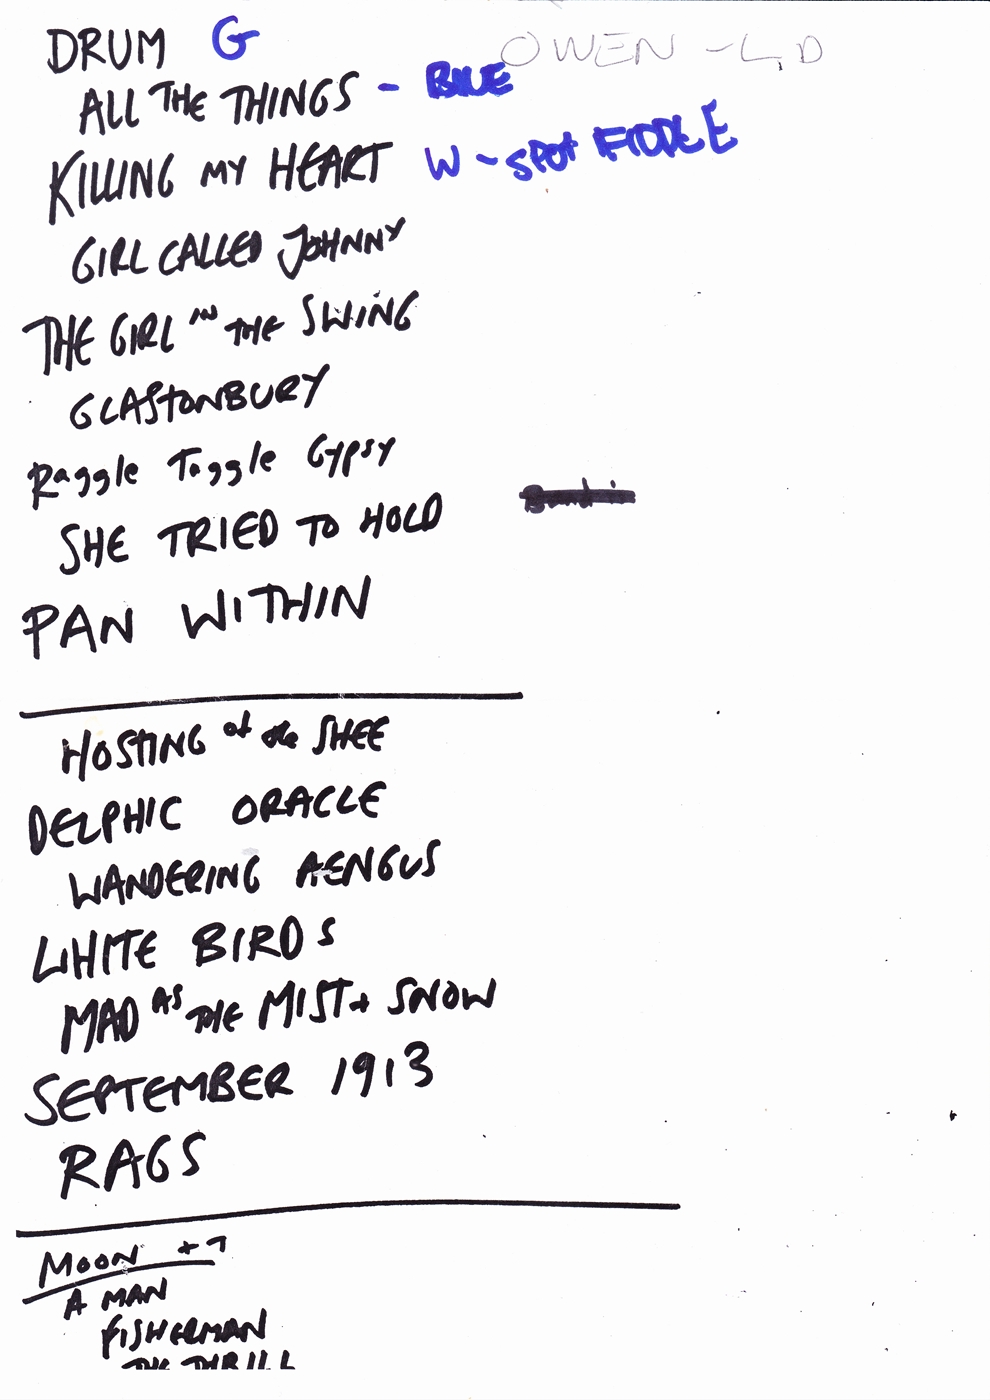 DRUM G OWEN - LD
ALL THE THINGS - BLUE
KILLING MY HEART W - SPOT FIDDLE
GIRL CALLED JOHNNY
THE GIRL IN THE SWING
GLASTONBURY
Raggle Taggle Gypsy
SHE TRIED TO HOLD
PAN WITHIN
HOSTING of the SHEE
DELPHIC ORACLE
WANDERING AENGUS
WHITE BIRDS
MAD AS THE MIST + SNOW
SEPTEMBER 1913
RAGS
MOON + 7
A MAN
FISHERMAN
THE THRILL